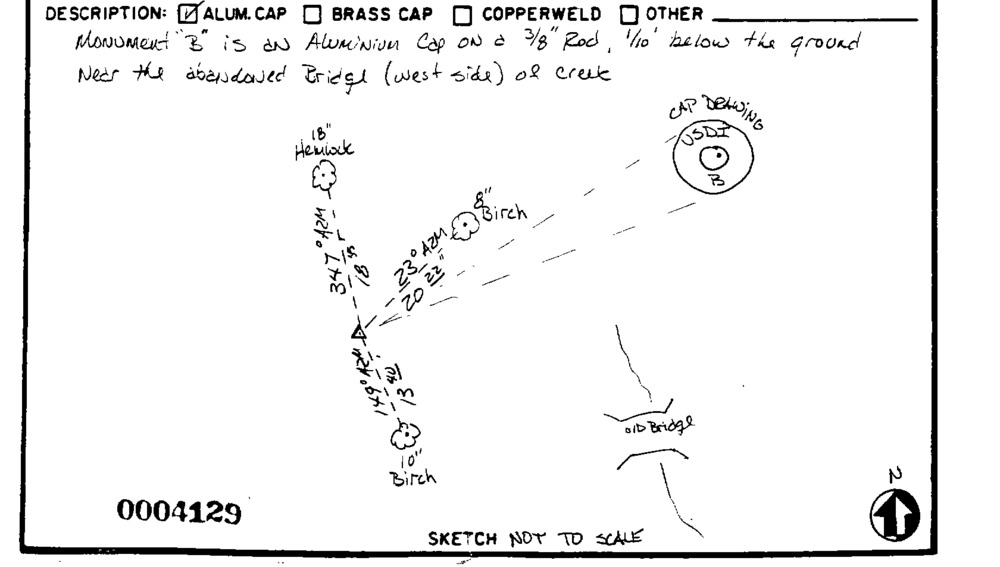 DESCRIPTION: ALUM. CAP BRASS CAP COPPERWELD OTHER
Monument "B" is an Aluminium Cap on a 3/8" Rod, 1/10' below the ground
Near the abandoned Bridge (west side) of creek
CAP DRAWING
USDI
B
18"
Hemlock
8"
Birch
347° AZM
18
23° AZM
20 22"
149° AZM
13 40
10"
Birch
OLD Bridge
N
0004129
SKETCH NOT TO SCALE